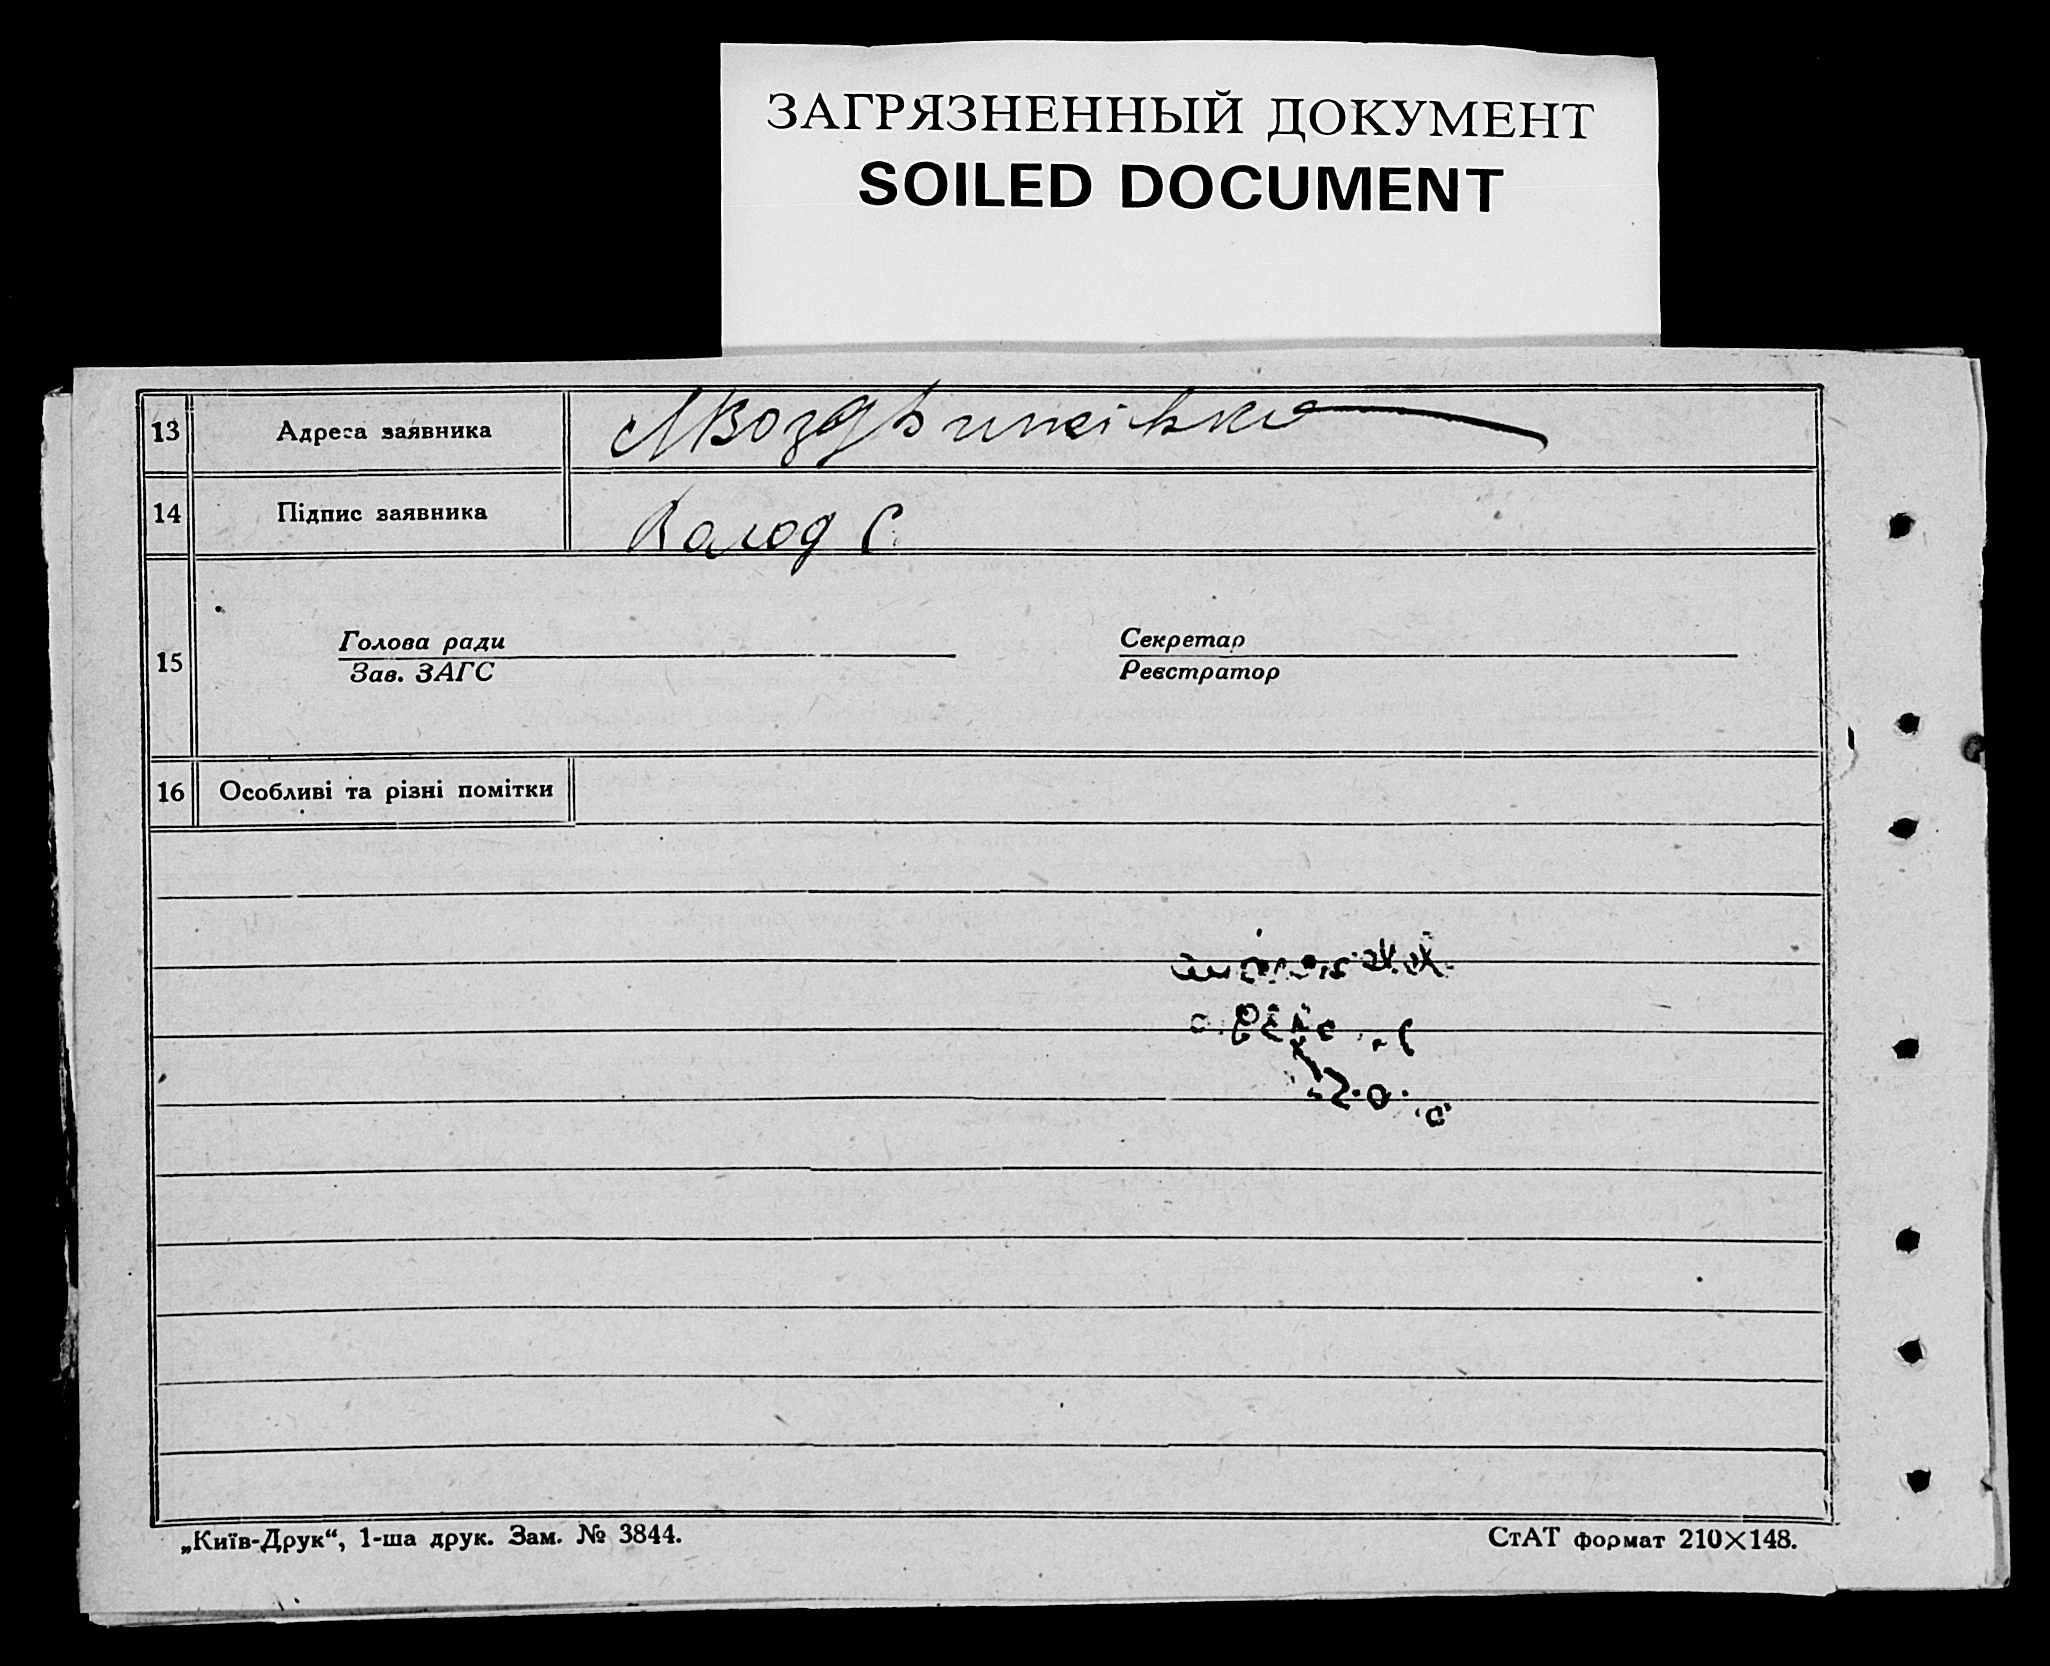 ЗАГРЯЗНЕННЫЙ ДОКУМЕНТ
SOILED DOCUMENT
13 Адреса заявника
14 Підпис заявника С.
15 Голова ради Секретар
Зав. ЗАГС Реєстратор
16 Особливі та різні помітки
„Київ-Друк“, 1-ша друк. Зам. № 3844. СтАТ формат 210×148.